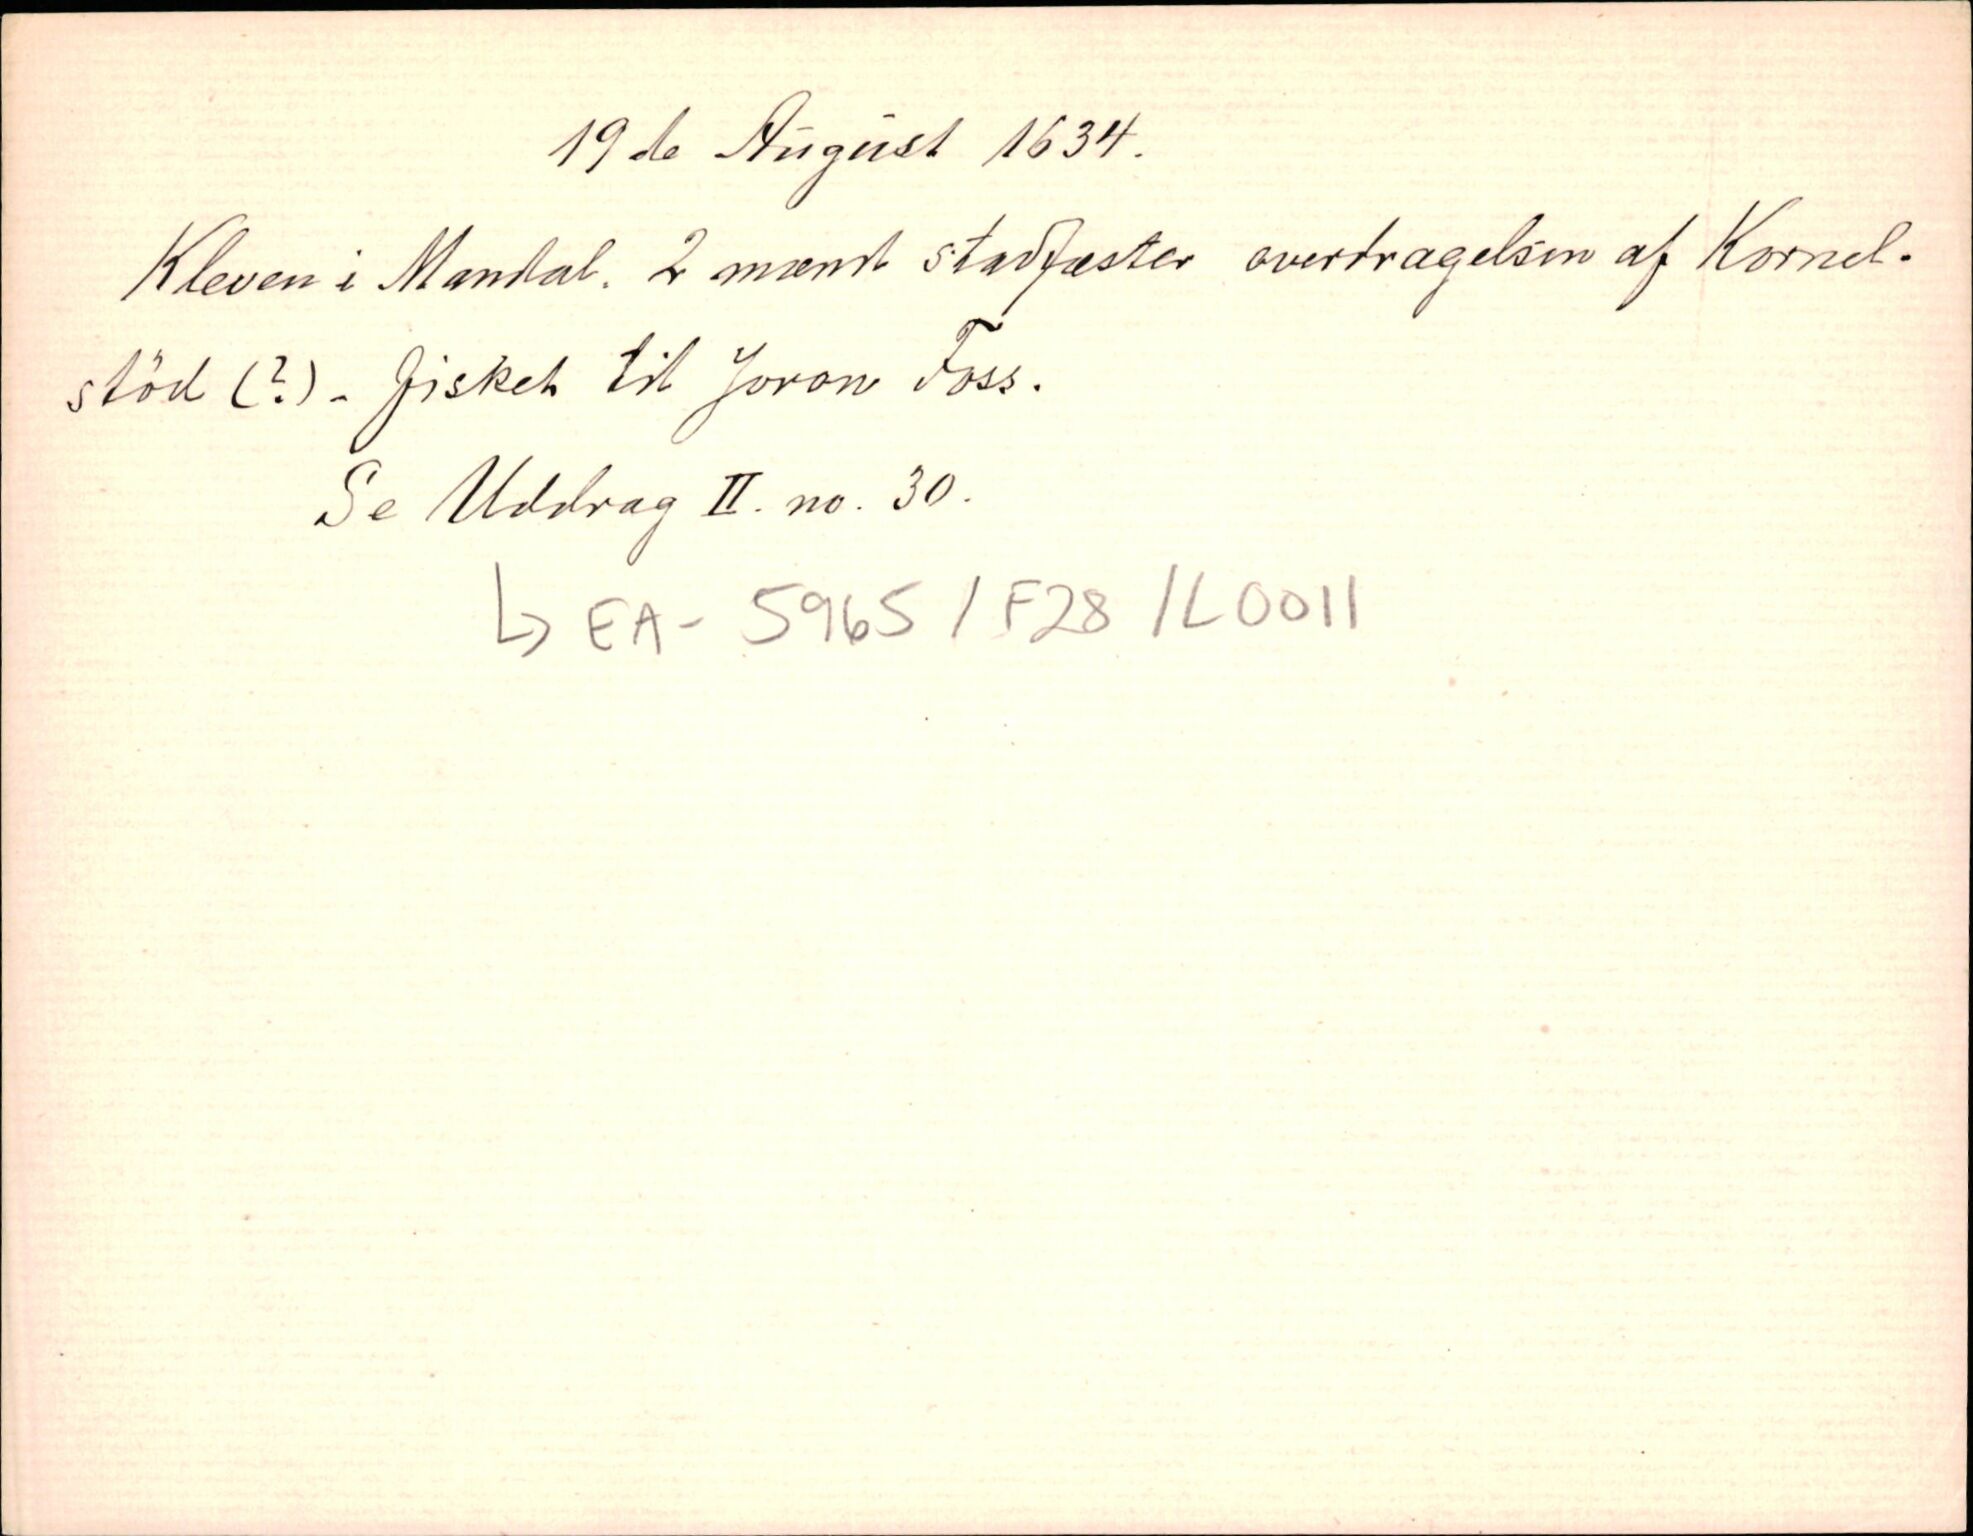 19de August 1634.
Kleven i Mandal. 2 mænd stadfæster overdragelsen af Kornel-
stöd (?) - fisket til Joron Foss.
Se Uddrag II. no. 30.
↳ EA- 5965 / F28 / L0011